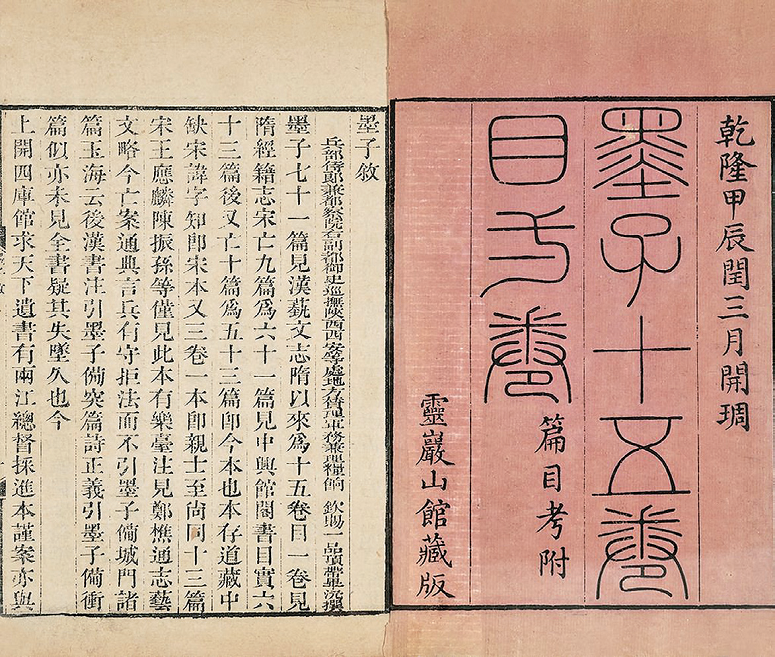 乾隆甲辰閏三月開琱
墨子十五卷
目 卷
篇目考附
靈巖山館藏版
墨子敘
兵部侍郎兼都察院右副都御史巡撫陝西西安等處地方贊理軍務兼理糧餉 欽賜一品頂帶畢沅撰
墨子七十一篇見漢蓺文志隋以來爲十五卷目一卷見
隋經籍志宋亡九篇爲六十一篇見中興館閣書目實六
十三篇後又亡十篇爲五十三篇卽今本也本存道藏中
缺宋諱字知卽宋本又三卷一本卽親士至尙同十三篇
宋王應麟陳振孫等僅見此本有樂臺注見鄭樵通志藝
文略今亡案通典言兵有守拒法而不引墨子備城門諸
篇玉海云後漢書注引墨子備突篇詩正義引墨子備衝
篇似亦未見全書疑其失墜久也今
上開四庫館求天下遺書有兩江總督採進本謹案亦與